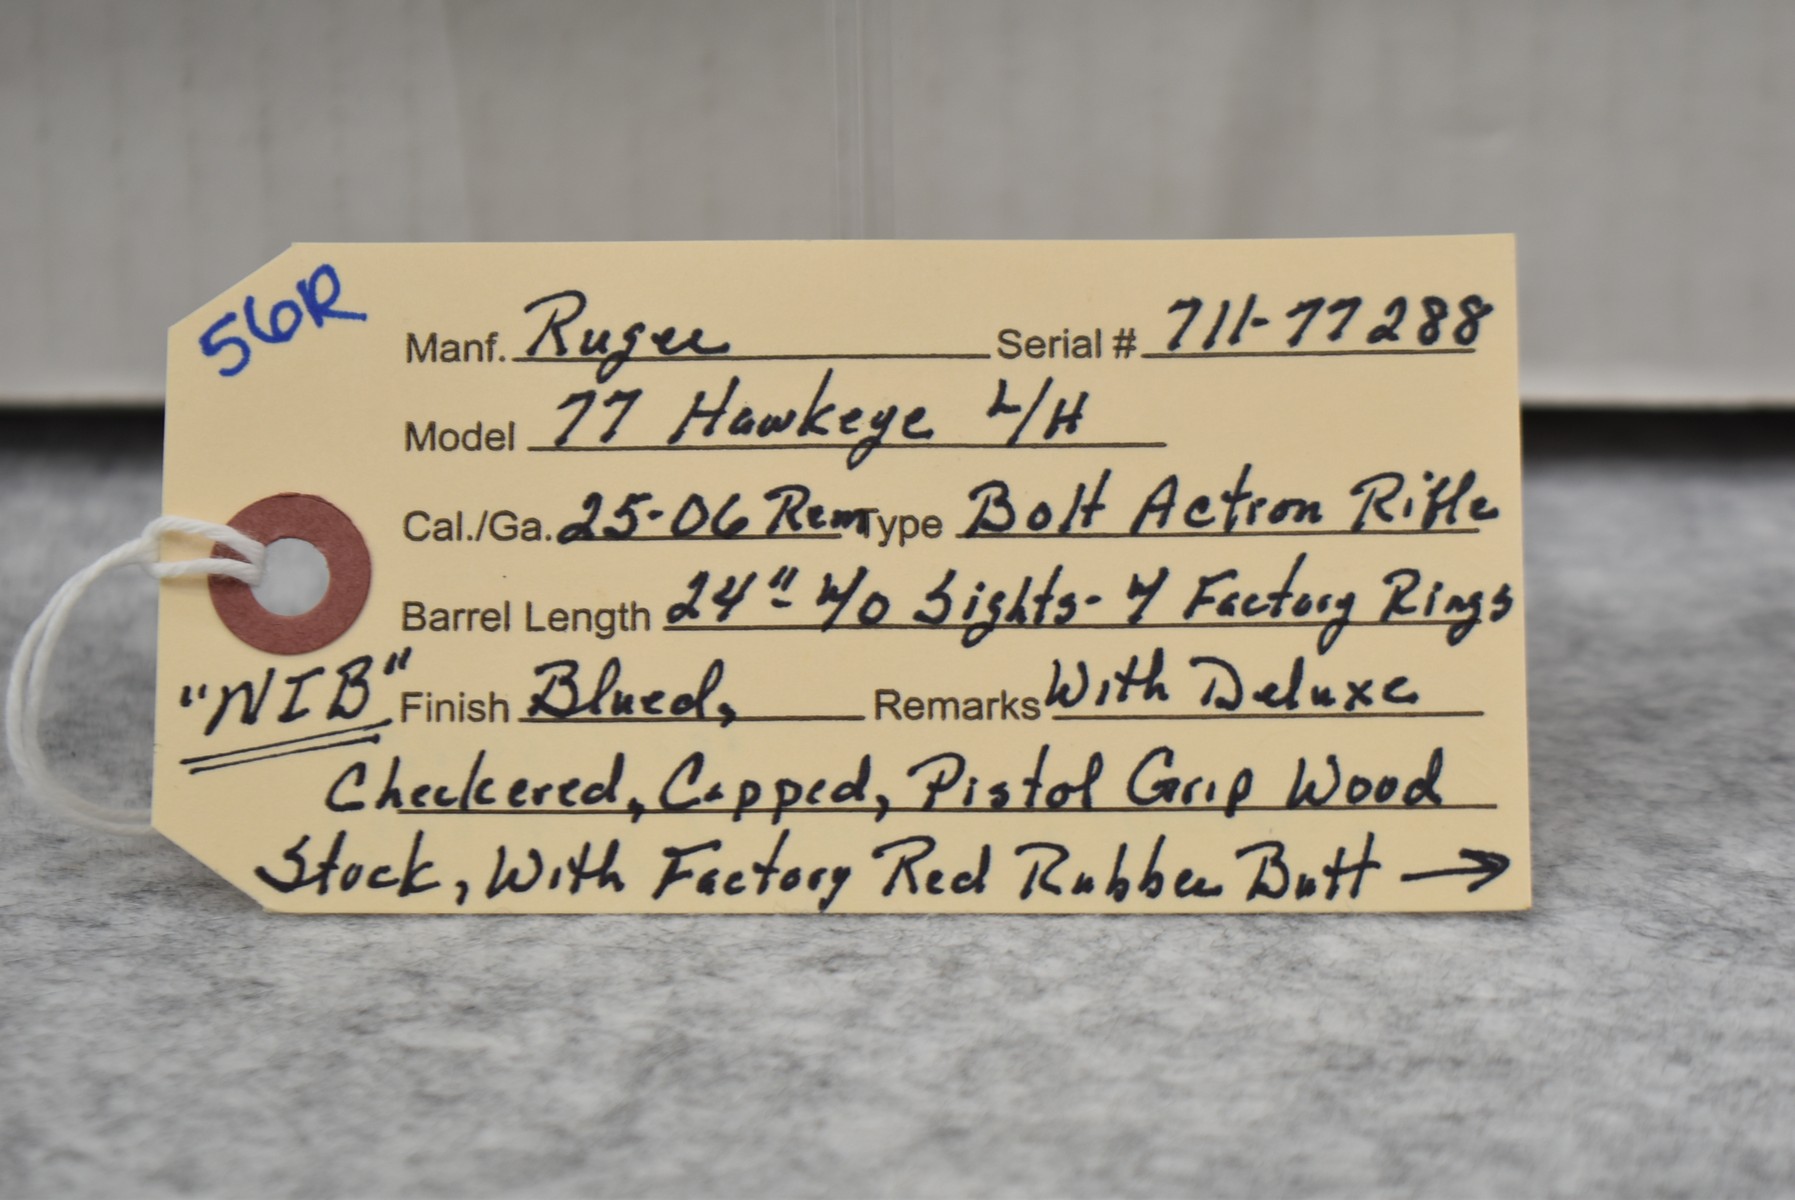 56R
Manf. Ruger Serial # 711-77288
Model 77 Hawkeye L/H
Cal./Ga. 25-06 Rem Type Bolt Action Rifle
Barrel Length 24" W/O Sights- W/ Factory Rings
"NIB" Finish Blued, Remarks With Deluxe
Checkered, Capped, Pistol Grip Wood
Stock, With Factory Red Rubber Butt →